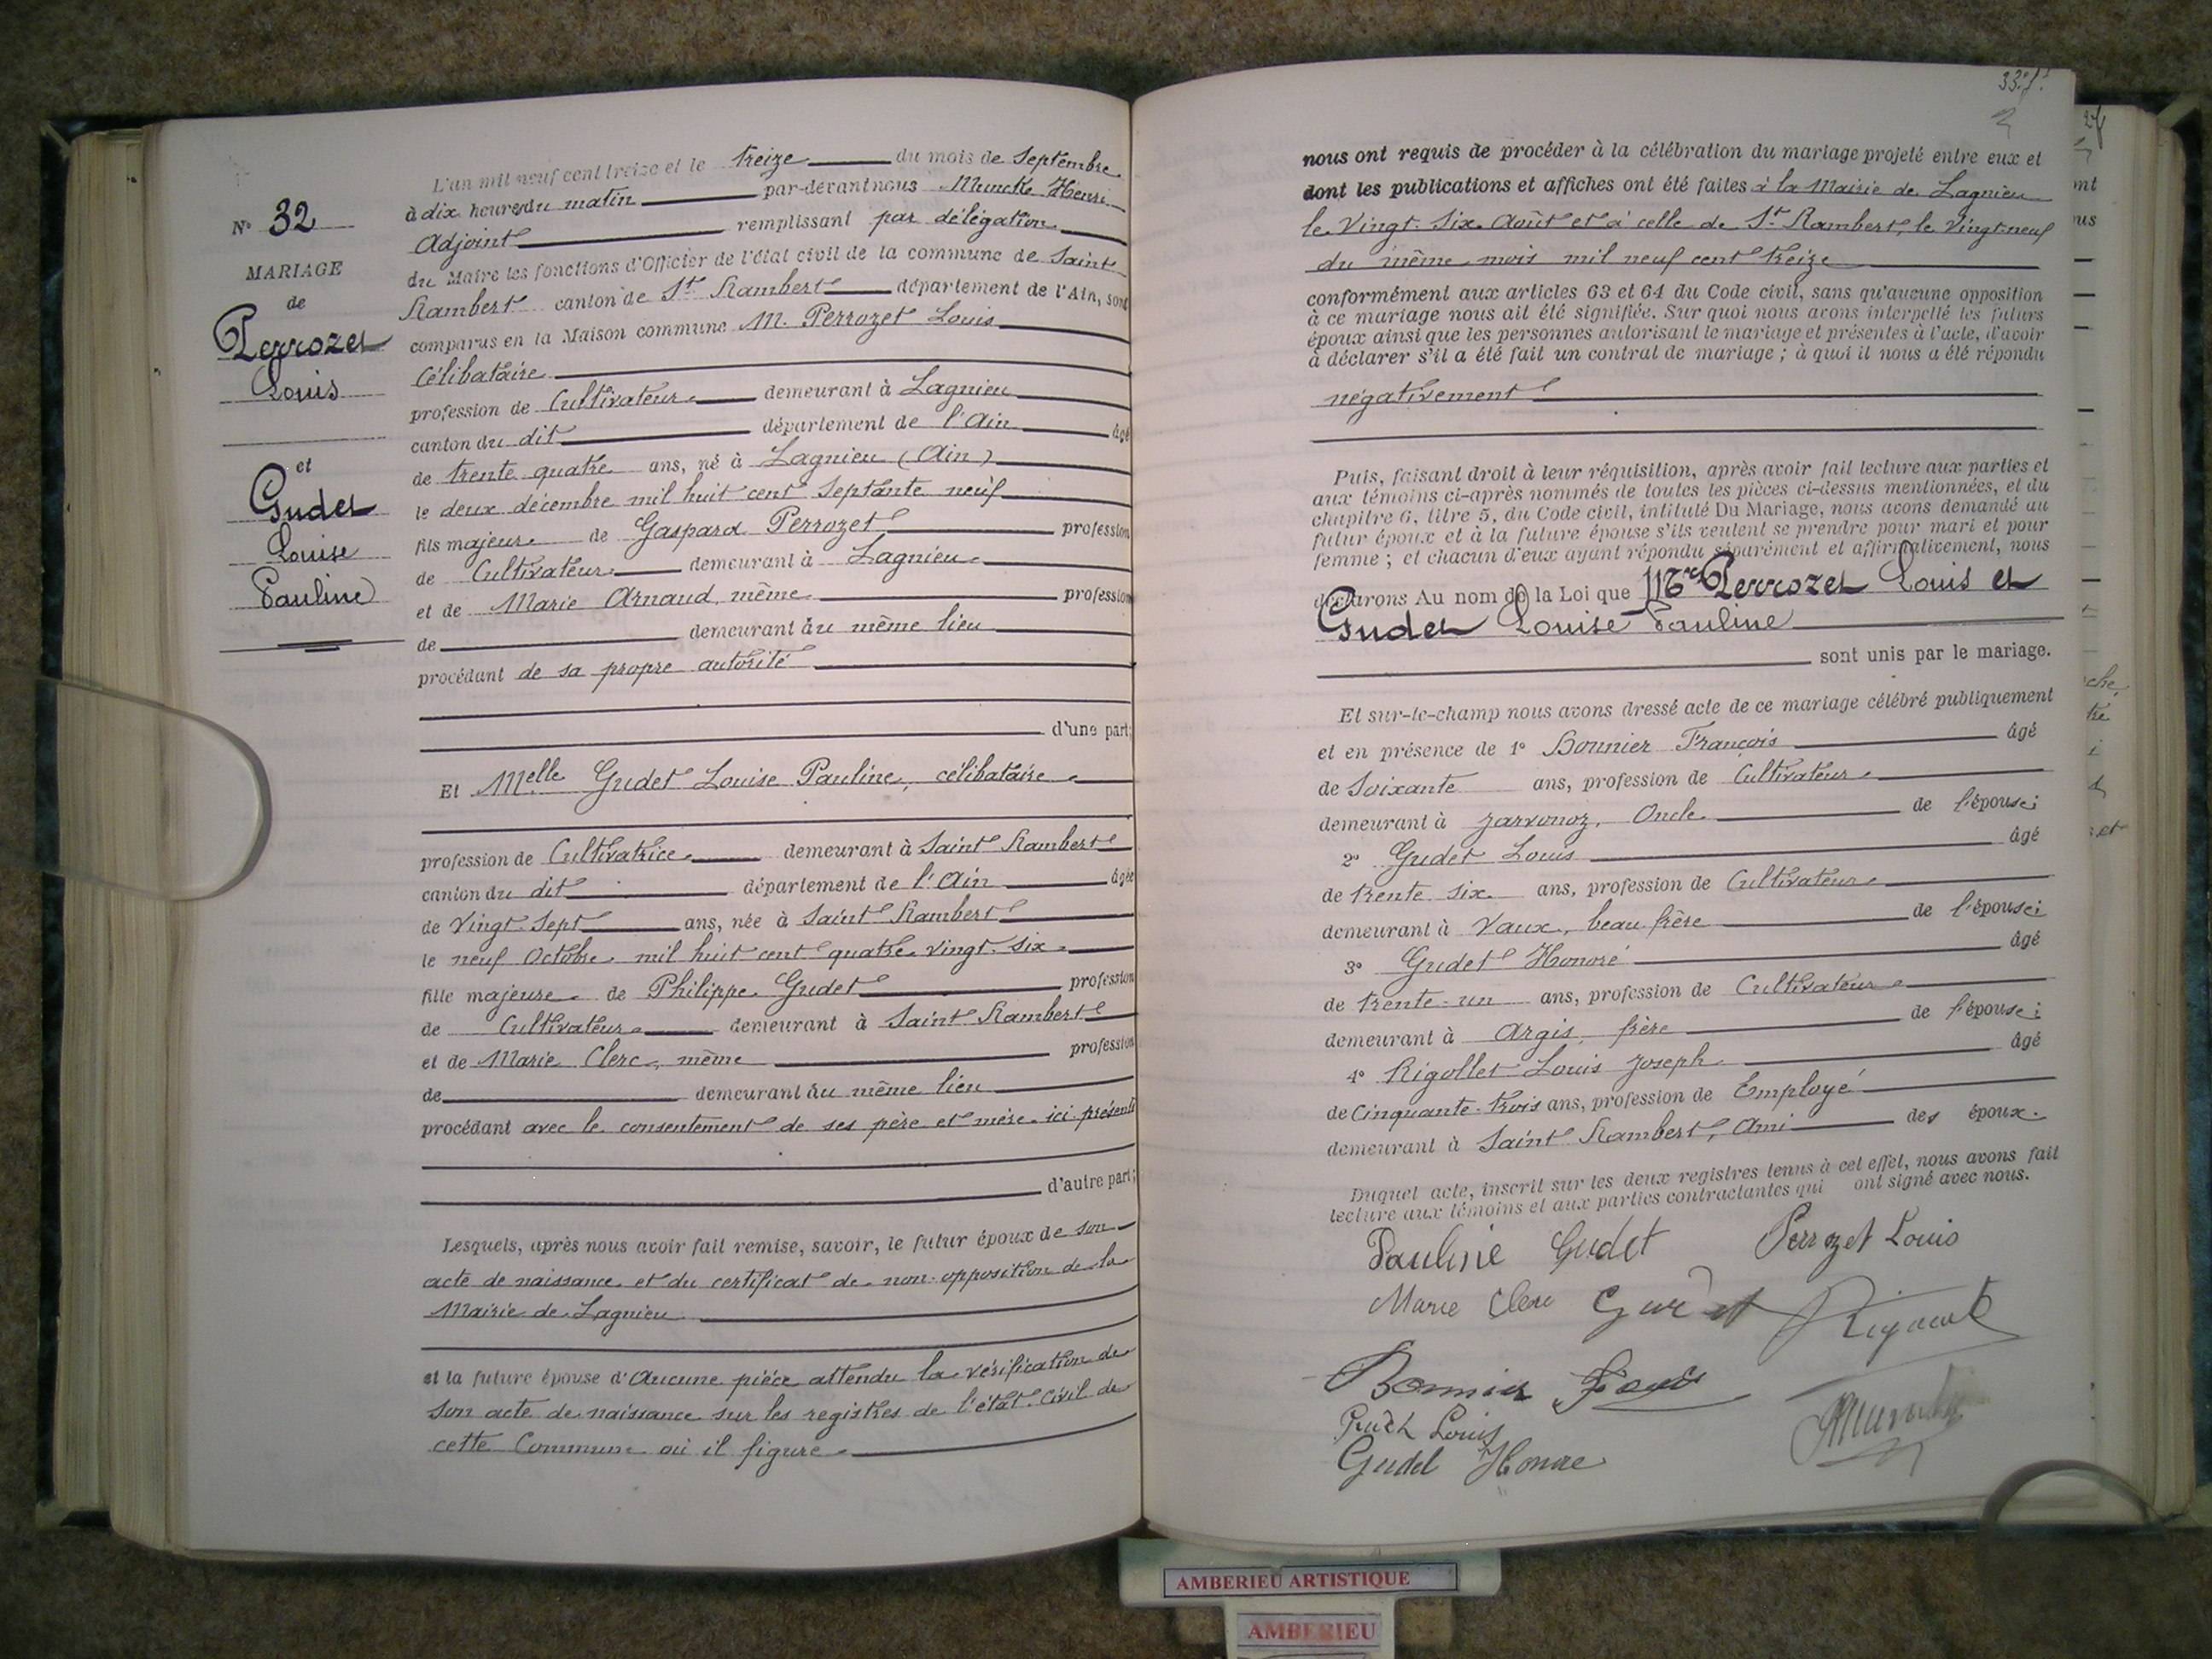 N° 32
MARIAGE
de
Perrozet
Louis
et
Gudet
Louise
Pauline
L'an mil neuf cent treize et le treize du mois de Septembre
à dix heures du matin par-devant nous Munette Henri
Adjoint remplissant par délégation
du Maire les fonctions d'Officier de l'état civil de la commune de Saint
Rambert canton de St Rambert département de l'Ain, sont
comparus en la Maison commune M. Perrozet Louis
Célibataire
profession de Cultivateur demeurant à Lagnieu
canton du dit département de l'Ain âgé
de trente quatre ans, né à Lagnieu (Ain)
le deux décembre mil huit cent septante neuf
fils majeur de Gaspard Perrozet profession
de Cultivateur demeurant à Lagnieu
et de Marie Arnaud, même profession
de demeurant au même lieu
procédant de sa propre autorité
d'une part;
Et Melle Gudet Louise Pauline, célibataire
profession de Cultivatrice demeurant à Saint Rambert
canton du dit département de l'Ain âgée
de Vingt Sept ans, née à Saint Rambert
le neuf Octobre mil huit cent quatre vingt six
fille majeure de Philippe Gudet profession
de Cultivateur demeurant à Saint Rambert
et de Marie Clerc, même profession
de demeurant au même lieu
procédant avec le consentement de ses père et mère ici présents
d'autre part;
Lesquels, après nous avoir fait remise, savoir, le futur époux de son
acte de naissance et du certificat de non opposition de la
Mairie de Lagnieu
et la future épouse d'Aucune pièce attendu la vérification de
son acte de naissance sur les registres de l'état Civil de
cette Commune où il figure
33 f.
nous ont requis de procéder à la célébration du mariage projeté entre eux et
dont les publications et affiches ont été faites à la Mairie de Lagnieu
le Vingt Six Août et à celle de St Rambert, le Vingt neuf
du même mois mil neuf cent treize
conformément aux articles 63 et 64 du Code civil, sans qu'aucune opposition
à ce mariage nous ait été signifiée. Sur quoi nous avons interpellé les futurs
époux ainsi que les personnes autorisant le mariage et présentes à l'acte, d'avoir
à déclarer s'il a été fait un contrat de mariage; à quoi il nous a été répondu
négativement
Puis, faisant droit à leur réquisition, après avoir fait lecture aux parties et
aux témoins ci-après nommés de toutes les pièces ci-dessus mentionnées, et du
chapitre 6, titre 5, du Code civil, intitulé Du Mariage, nous avons demandé au
futur époux et à la future épouse s'ils veulent se prendre pour mari et pour
femme; et chacun d'eux ayant répondu séparément et affirmativement, nous
déclarons Au nom de la Loi que Mr Perrozet Louis et
Gudet Louise Pauline
sont unis par le mariage.
Et sur-le-champ nous avons dressé acte de ce mariage célébré publiquement
et en présence de 1° Bonnier François âgé
de Soixante ans, profession de Cultivateur
demeurant à Jarvonoz, Oncle de l'épouse;
2° Gudet Louis âgé
de trente six ans, profession de Cultivateur
demeurant à Vaux, beau frère de l'épouse;
3° Gudet Honoré âgé
de trente-un ans, profession de Cultivateur
demeurant à Argis, frère de l'épouse;
4° Rigollet Louis Joseph âgé
de Cinquante-trois ans, profession de Employé
demeurant à Saint Rambert, Ami des époux.
Duquel acte, inscrit sur les deux registres tenus à cet effet, nous avons fait
lecture aux témoins et aux parties contractantes qui ont signé avec nous.
Pauline Gudet Perrozet Louis
Marie Clerc Gudet
Bonnier
Gudet Louis
Gudet Honoré
AMBERIEU ARTISTIQUE
AMBERIEU